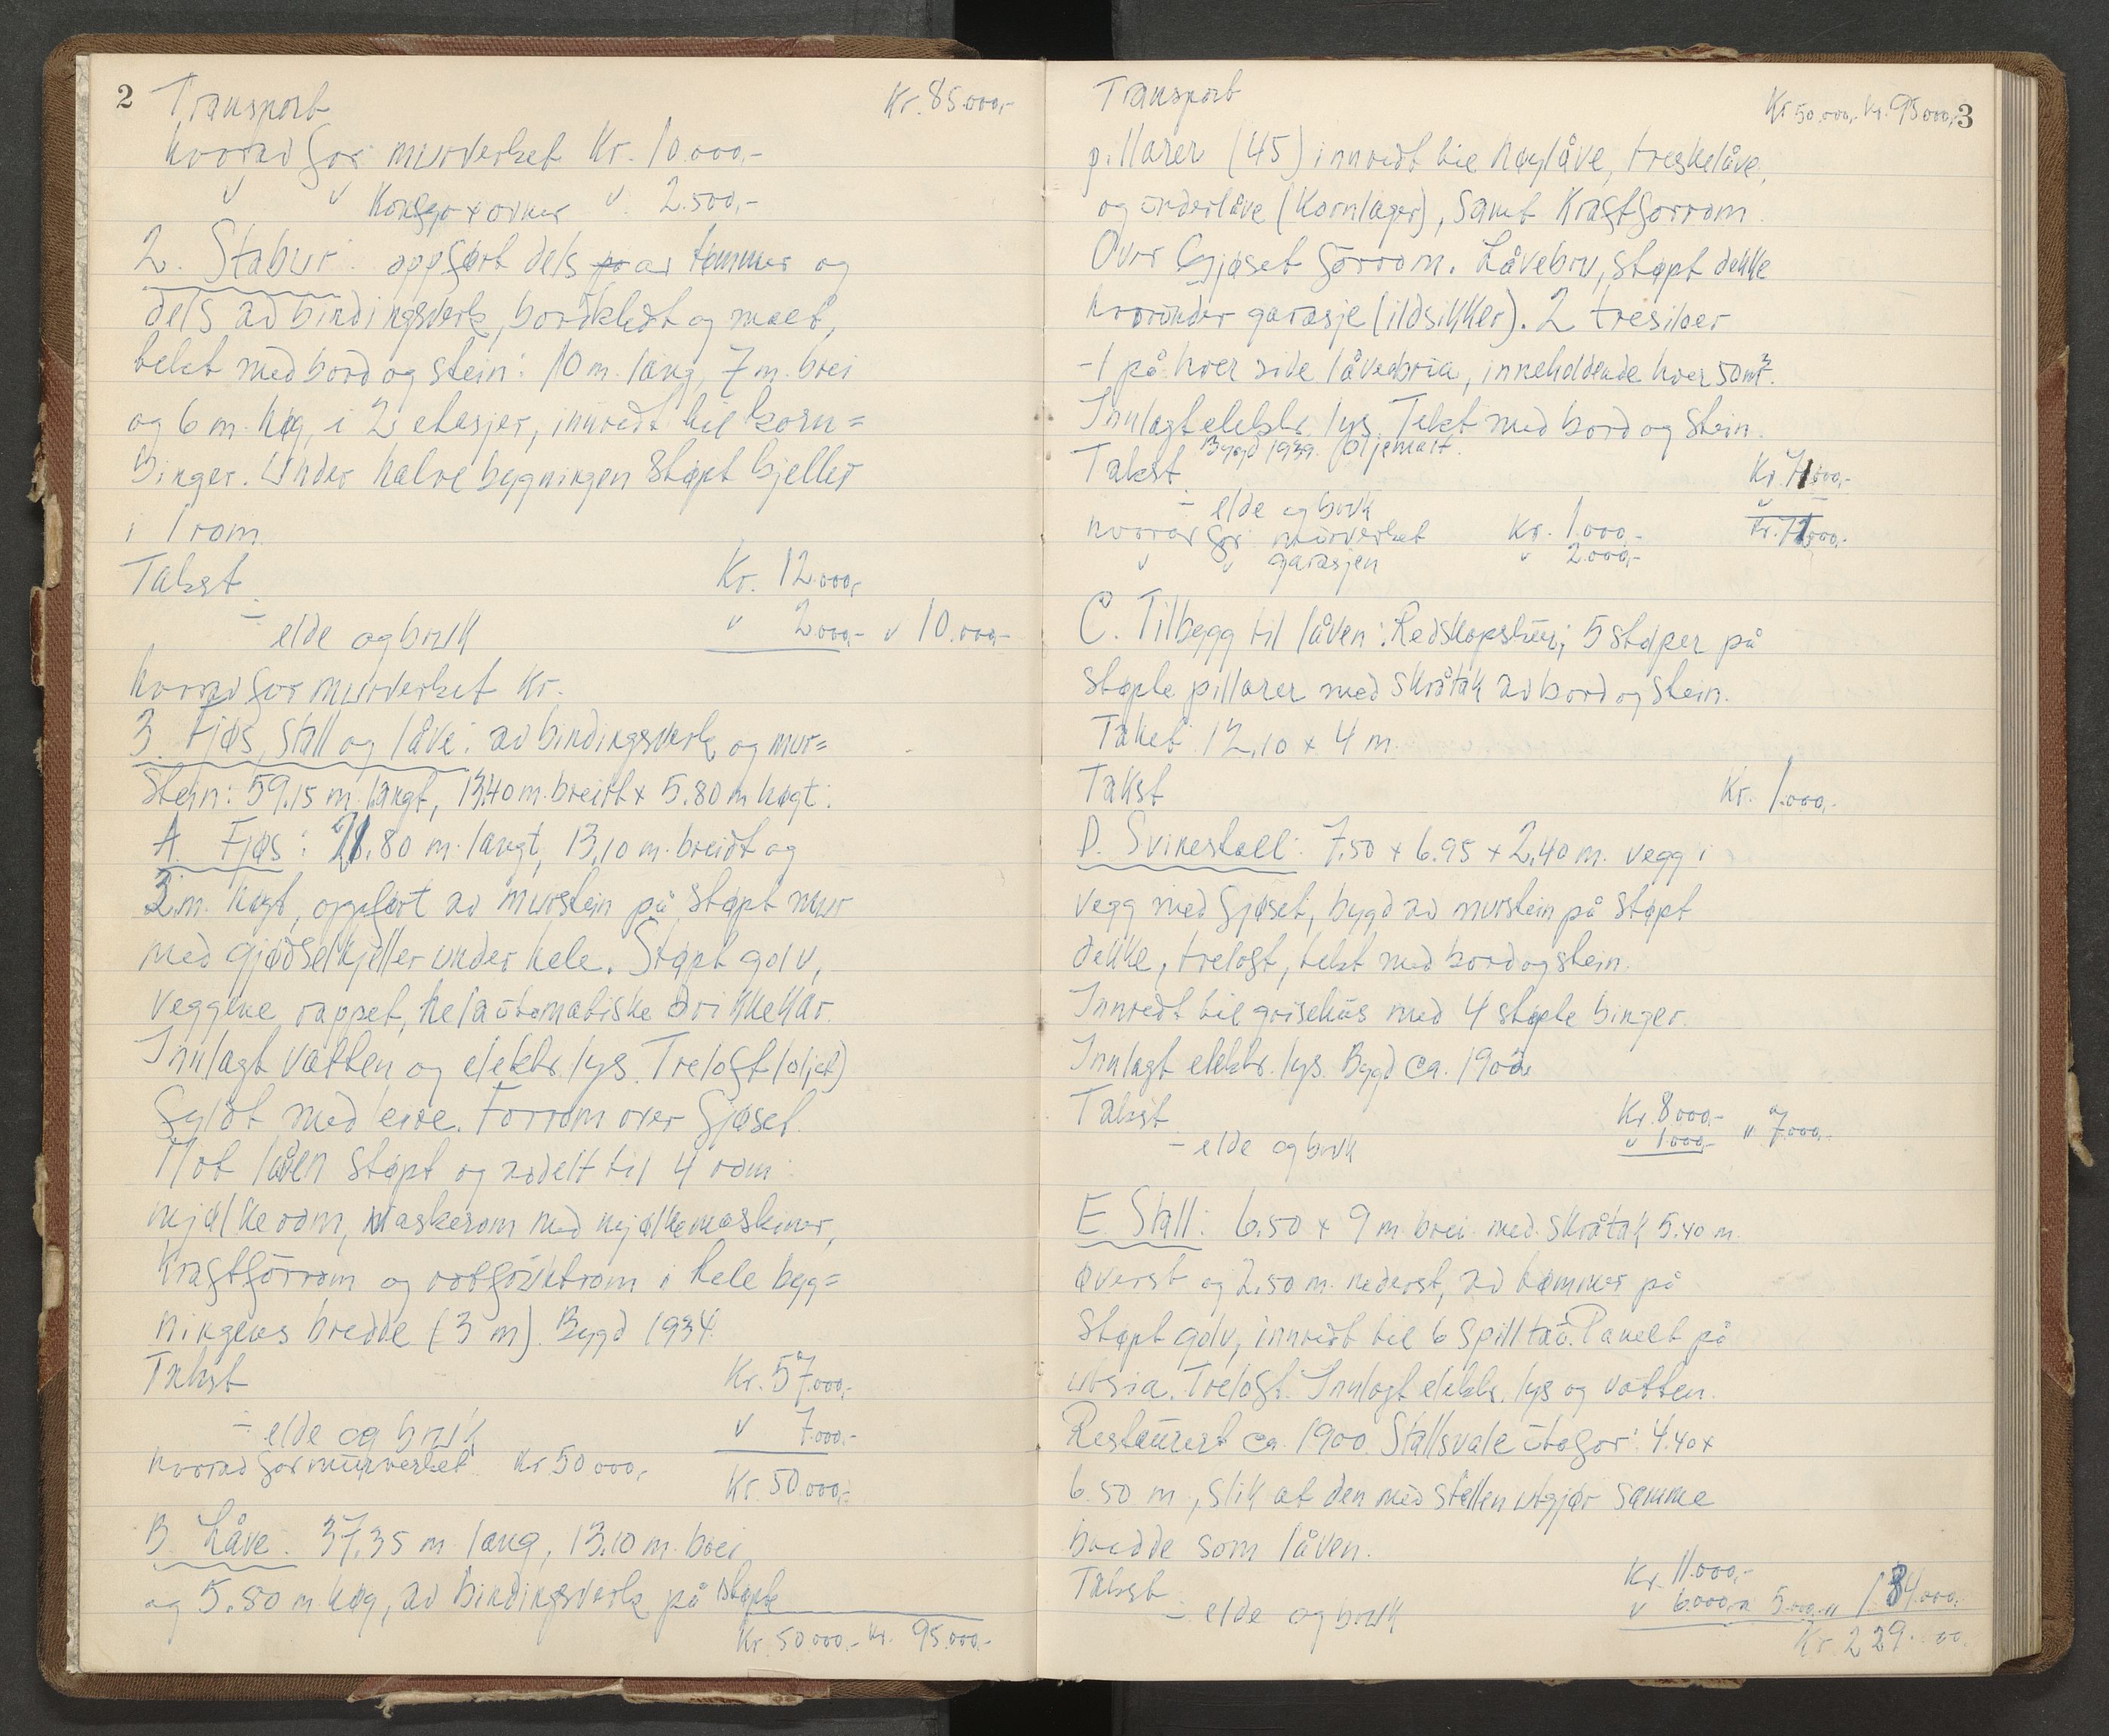 2 Transport Kr. 85.000,-
hvorav for murverket Kr. 10.000,-
" " Komfyr + ovner " 2.500,-
2. Stabur: oppført dels av tømmer og
dels av bindingsverk, bordkledt og malt,
tekt med bord og stein: 10 m. lang, 7 m. brei
og 6 m. høg, i 2 etasjer, innredt til korn=
binger. Under halve bygningen støpt kjeller
i 1 rom.
Takst Kr. 12.000,-
÷ elde og bruk " 2.000,- " 10.000,-
hvorav for murverket Kr.
3. Fjøs, Stall og låve: av bindingsverk og mur=
stein: 59.15 m. langt, 13.40 m. breidt x 5.80 m høgt:
A. Fjøs: 21.80 m. langt, 13,10 m. breidt og
3 m. høgt, oppført av murstein på støpt mur
med gjødselkjeller under hele. Støpt golv,
veggene rappet, helautomatiske drikkekar.
Innlagt vatten og elektr. lys. Treloft (oljet)
fyldt med leire. Forrom over fjøset.
Mot låven støpt og avdelt til 4 rom:
mjølkerom, vaskerom med mjølkemaskiner,
kraftforrom og rotfruktrom i hele byg=
ningens bredde (3 m). Bygd 1934.
Takst Kr. 57.000,-
÷ elde og bruk " 7.000,-
hvorav for murverket Kr 50 000,- Kr. 50.000,-
B. Låve: 37,35 m. lang, 13,10 m. brei
og 5.80 m. høg, av bindingsverk på støpte
Kr. 50.000,- Kr. 95.000,-
Transport Kr 50.000,- Kr. 95000,- 3
pillarer (45) innredt til høylåve, treskelåve,
og underlåve (Kornlager), samt Kraftforrom.
Over fjøset forrom. Låvebru, støpt dekke
hvorunder garasje (ildsikker). 2 tresiloer
- 1 på hver side låvebrua, inneholdende hver 50 m³.
Innlagt elektr. lys. Tekt med bord og stein.
Bygd 1939. Oljemalt.
Takst Kr. 71.000,-
÷ elde og bruk " —
hvorav for murverket Kr. 1.000,- Kr. 71.000,-
" " garasjen " 2.000,-
C. Tilbygg til låven: Redskapshus; 5 stolper på
støpte pillarer med skråtak av bord og stein.
Taket 12,10 x 4 m.
Takst Kr. 1.000,-
D. Svinestall: 7.50 x 6.95 x 2.40 m. vegg i
vegg med fjøset, bygd av murstein på støpt
dekke, treloft, tekt med bord og stein.
Innredt til grisehus med 4 støpte binger.
Innlagt elektr. lys. Bygd ca. 1900.
Takst Kr. 8.000,-
÷ elde og bruk " 1.000,- " 7.000,-
E. Stall: 6.50 x 9 m. brei med skråtak 5.40 m.
øverst og 2.50 m. nederst, av tømmer på
støpt golv, innredt til 6 spilltau. Panelt på
utsia. Treloft. Innlagt elektr. lys og vatten.
Restaurert ca. 1900. Stallsvale utafor: 4.40 x
6.50 m, slik at den med stallen utgjør samme
bredde som låven.
Takst Kr. 11.000,-
÷ elde og bruk " 6.000,- " 5.000,- " 134.000,-
Kr. 229.000,-